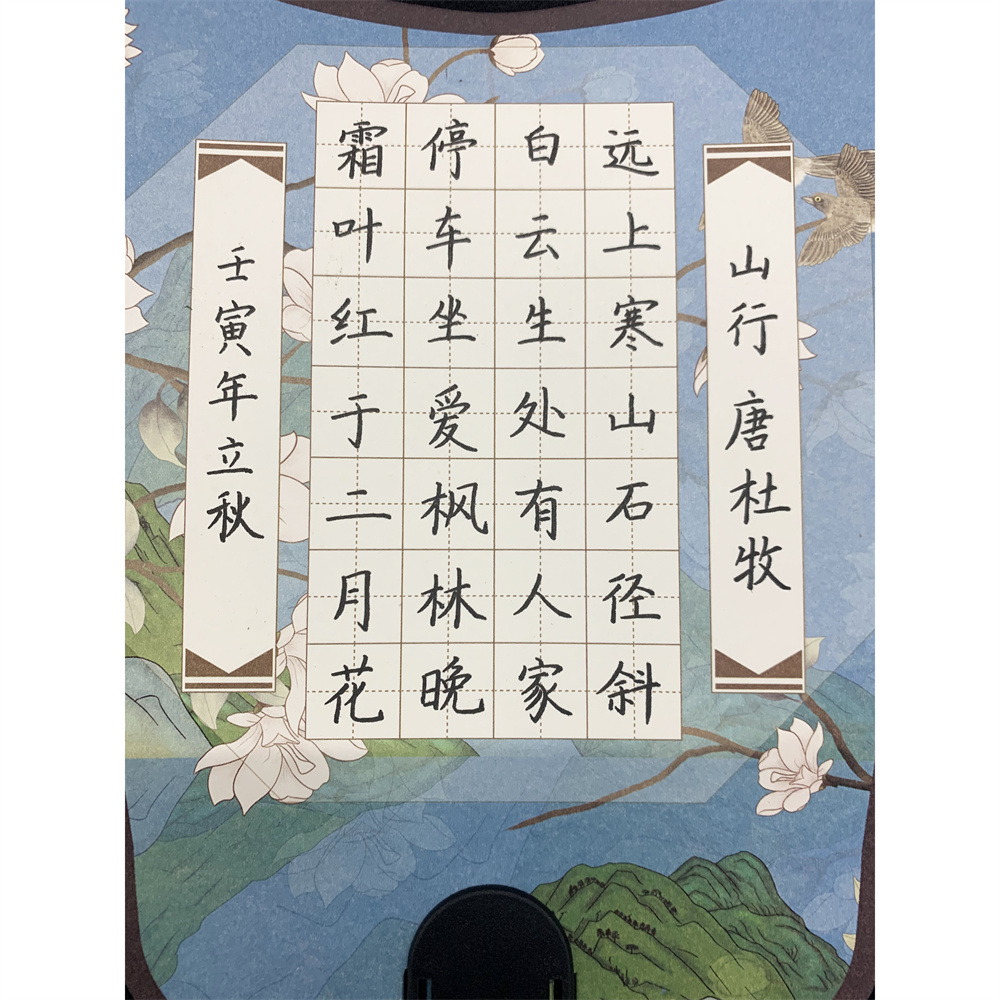 山行 唐 杜牧
远上寒山石径斜
白云生处有人家
停车坐爱枫林晚
霜叶红于二月花
壬寅年立秋